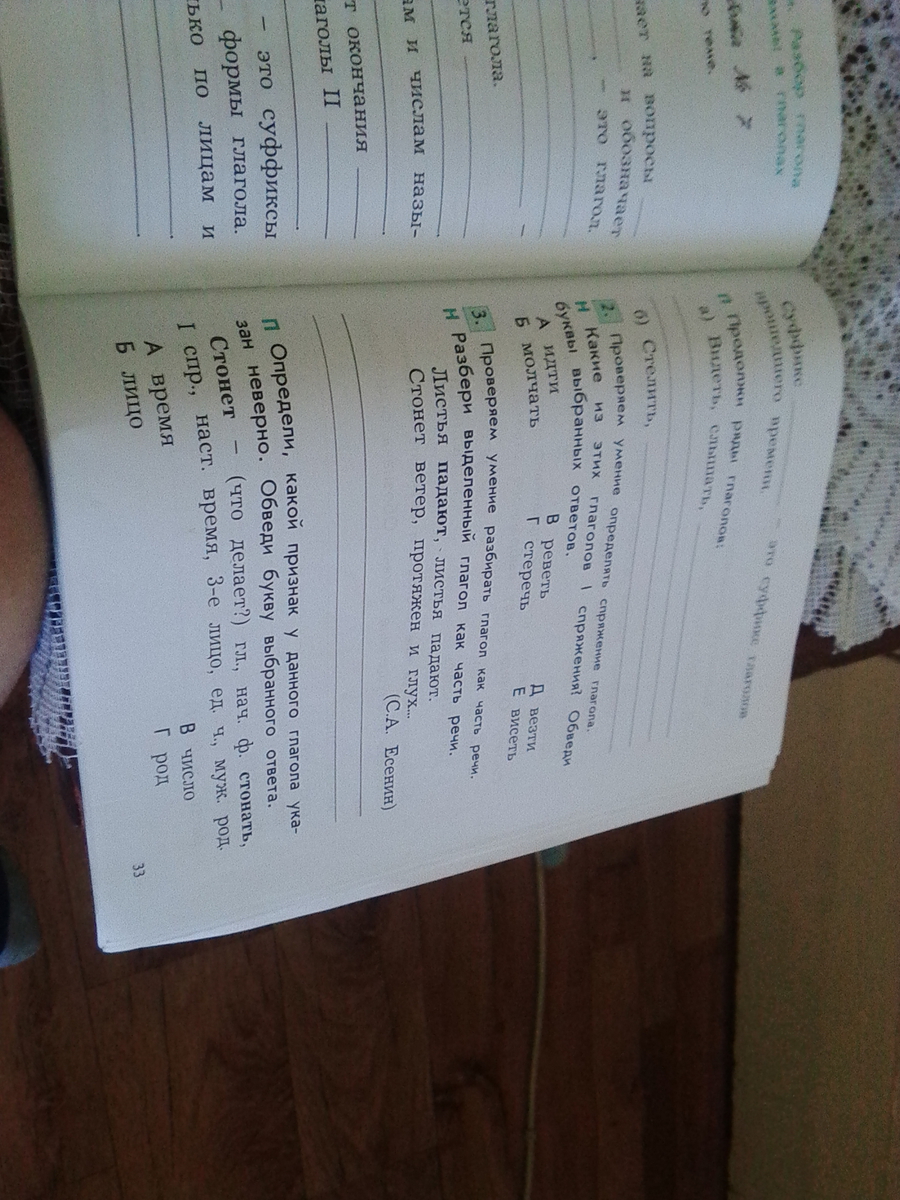 . Разбор глагола
в глаголах
№ 7
по теме.
на вопросы
и обозначает
, – это глагол.
–
глагола.
ется
ам и числам назы-
т окончания
лаголы II
– это суффиксы
– формы глагола.
ько по лицам и
Суффикс – это суффикс глаголов
прошедшего времени.
П Продолжи ряды глаголов:
а) Видеть, слышать,
б) Стелить,
2. Проверяем умение определять спряжение глагола.
Н Какие из этих глаголов I спряжения? Обведи
буквы выбранных ответов.
А идти В реветь Д везти
Б молчать Г стеречь Е висеть
3. Проверяем умение разбирать глагол как часть речи.
Н Разбери выделенный глагол как часть речи.
Листья падают, листья падают.
Стонет ветер, протяжен и глух...
(С.А. Есенин)
П Определи, какой признак у данного глагола ука-
зан неверно. Обведи букву выбранного ответа.
Стонет – (что делает?) гл., нач. ф. стонать,
I спр., наст. время, 3-е лицо, ед. ч., муж. род.
А время В число
Б лицо Г род
33